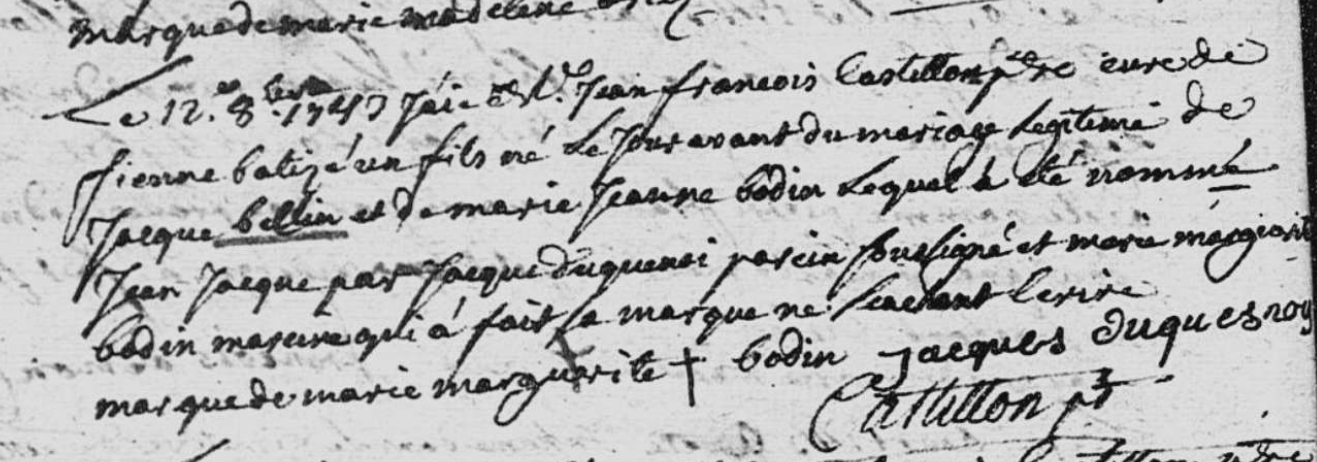 marque de marie madelene
Le 12.e 8.bre 1743 J'ai Jean francois Castillon ptre curé de
fienne batizé un fils né Le Jour avant du mariage Legitime de
Jacque bellin et de marie Jeanne bodin Lequel à été nommé
Jean Jacque par Jacque duquenoi parein soussigné et marie margiorite
bodin mareine qui à fait sa marque ne scachant Ecrire
marque de marie marguerite † bodin Jacques duquesnoy
Castillon ptr